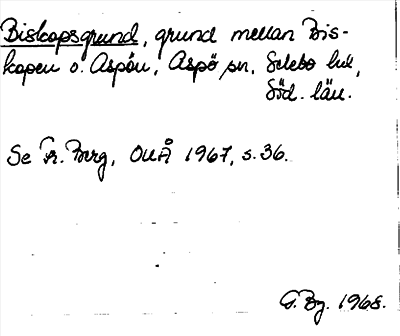 Biskopsgrund, grund mellan Bis-
kopen o. Aspön, Aspö sn, Selebo hd,
Söd. län.
Se R. Berg, OUÅ 1967, s. 36.
G. Bg. 1968.